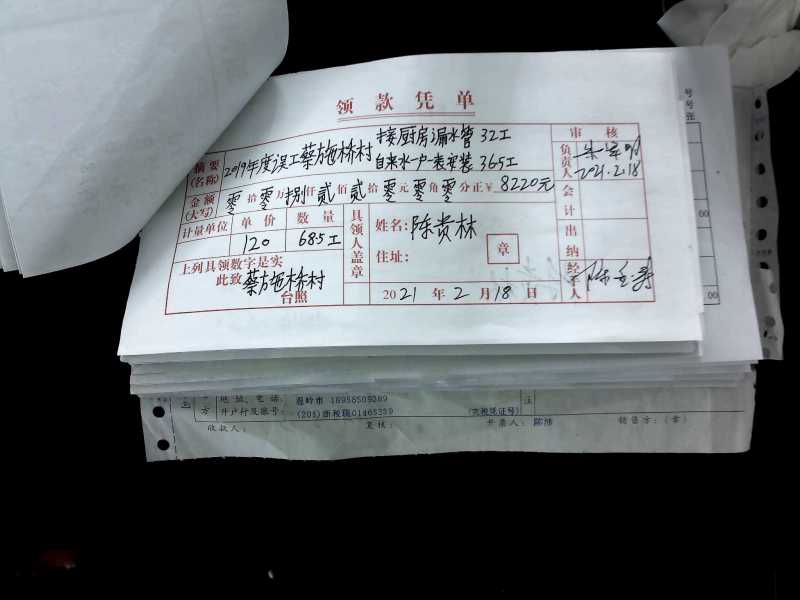 领款凭单
摘要(名称) 2019年度误工蔡施桥村 接厨房漏水管 32工
自来水一户一表安装 36.5工
审核
负责人 2021.2.18
金额(大写) 零拾零万捌仟贰佰贰拾零元零角零分正¥8220元
会计
计量单位 单价 数量
120 68.5工
具领人盖章
姓名: 陈贵林
住址: 章
出纳
上列具领数字是实
此致 蔡施桥村
台照
2021年2月18日
经手人
号
号
张
00
00
方
地址、电话
开户行及账号:
注
收款人:
复核:
开票人:
销售方:(章)